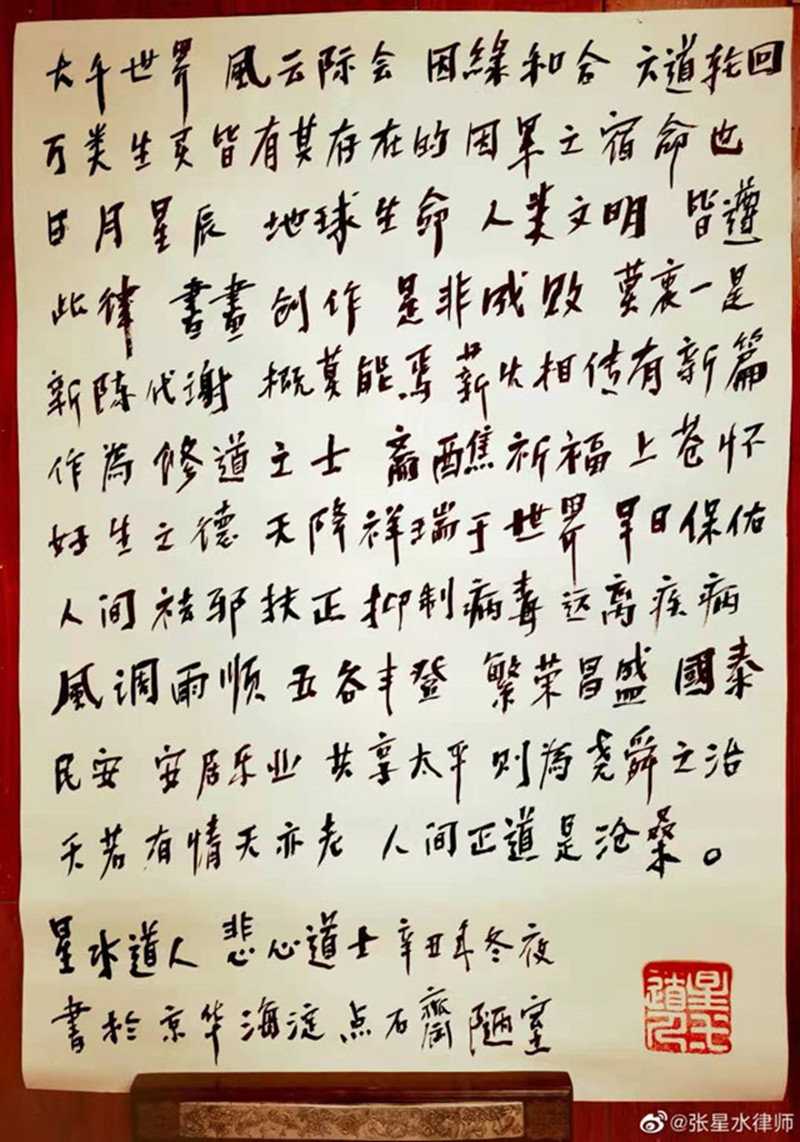 大千世界 風云际会 因緣和合 六道轮回
万类生灵皆有其存在的因果之宿命也
日月星辰 地球生命 人类文明 皆遵
此律 書畫创作 是非成败 莫衷一是
新陈代谢 概莫能焉 薪火相传有新篇
作為修道之士 斋醮祈福上苍怀
好生之德 天降祥瑞于世界 早日保佑
人间祛邪扶正抑制病毒远离疾病
風调雨顺 五谷丰登 繁荣昌盛 國泰
民安 安居乐业 共享太平 则為尧舜之治
天若有情天亦老 人间正道是沧桑。
星水道人 悲心道士 辛丑年冬夜
書於京华海淀点石齋陋室
星水道人
@张星水律师